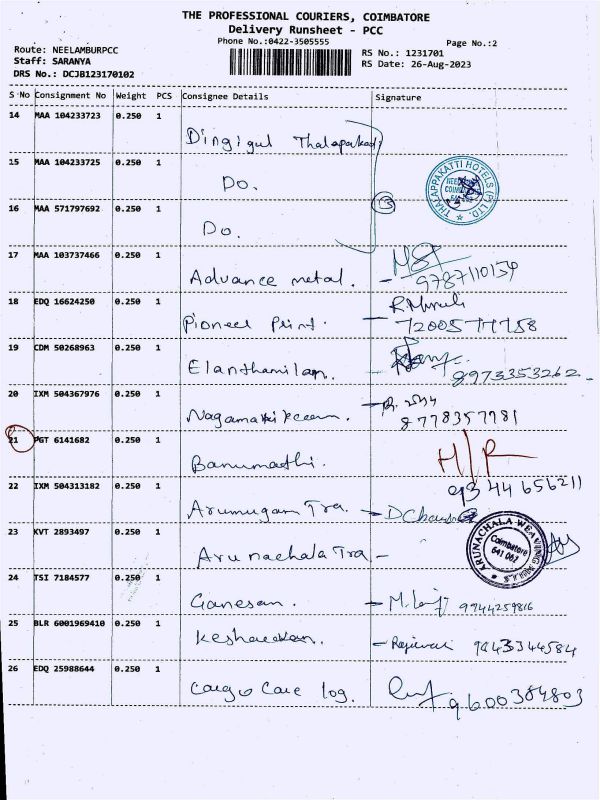 THE PROFESSIONAL COURIERS, COIMBATORE
Delivery Runsheet - PCC
Phone No.:0422-3505555
Page No.:2
Route: NEELAMBURPCC
Staff: SARANYA
DRS No.: DCJB123170102
RS No.: 1231701
RS Date: 26-Aug-2023
S No Consignment No Weight PCS Consignee Details Signature
14 MAA 104233723 0.250 1 Dingigul Thalapakadi
15 MAA 104233725 0.250 1 Do.
THALAPPAKATTI HOTELS (P) LTD.
16 MAA 571797692 0.250 1 Do.
3
17 MAA 103737466 0.250 1 Advance metal. - 9787110159
18 EDQ 16624250 0.250 1 Pioneer Print. - R.Murali
7200577758
19 CDM 50268963 0.250 1 Elanthamilan. 8973353262
20 IXM 504367976 0.250 1 8778357781
21 PGT 6141682 0.250 1 Banumathi. H/R
9344656211
22 IXM 504313182 0.250 1 Arumugam Tra. -
23 KVT 2893497 0.250 1 Arunachala Tra -
ARUNACHALA WEAVING MILLS
Coimbatore
641 062
24 TSI 7184577 0.250 1 Ganesan. - 9944259816
25 BLR 6001969410 0.250 1 - 9443344584
26 EDQ 25988644 0.250 1 Cargo Care log. 9600384803